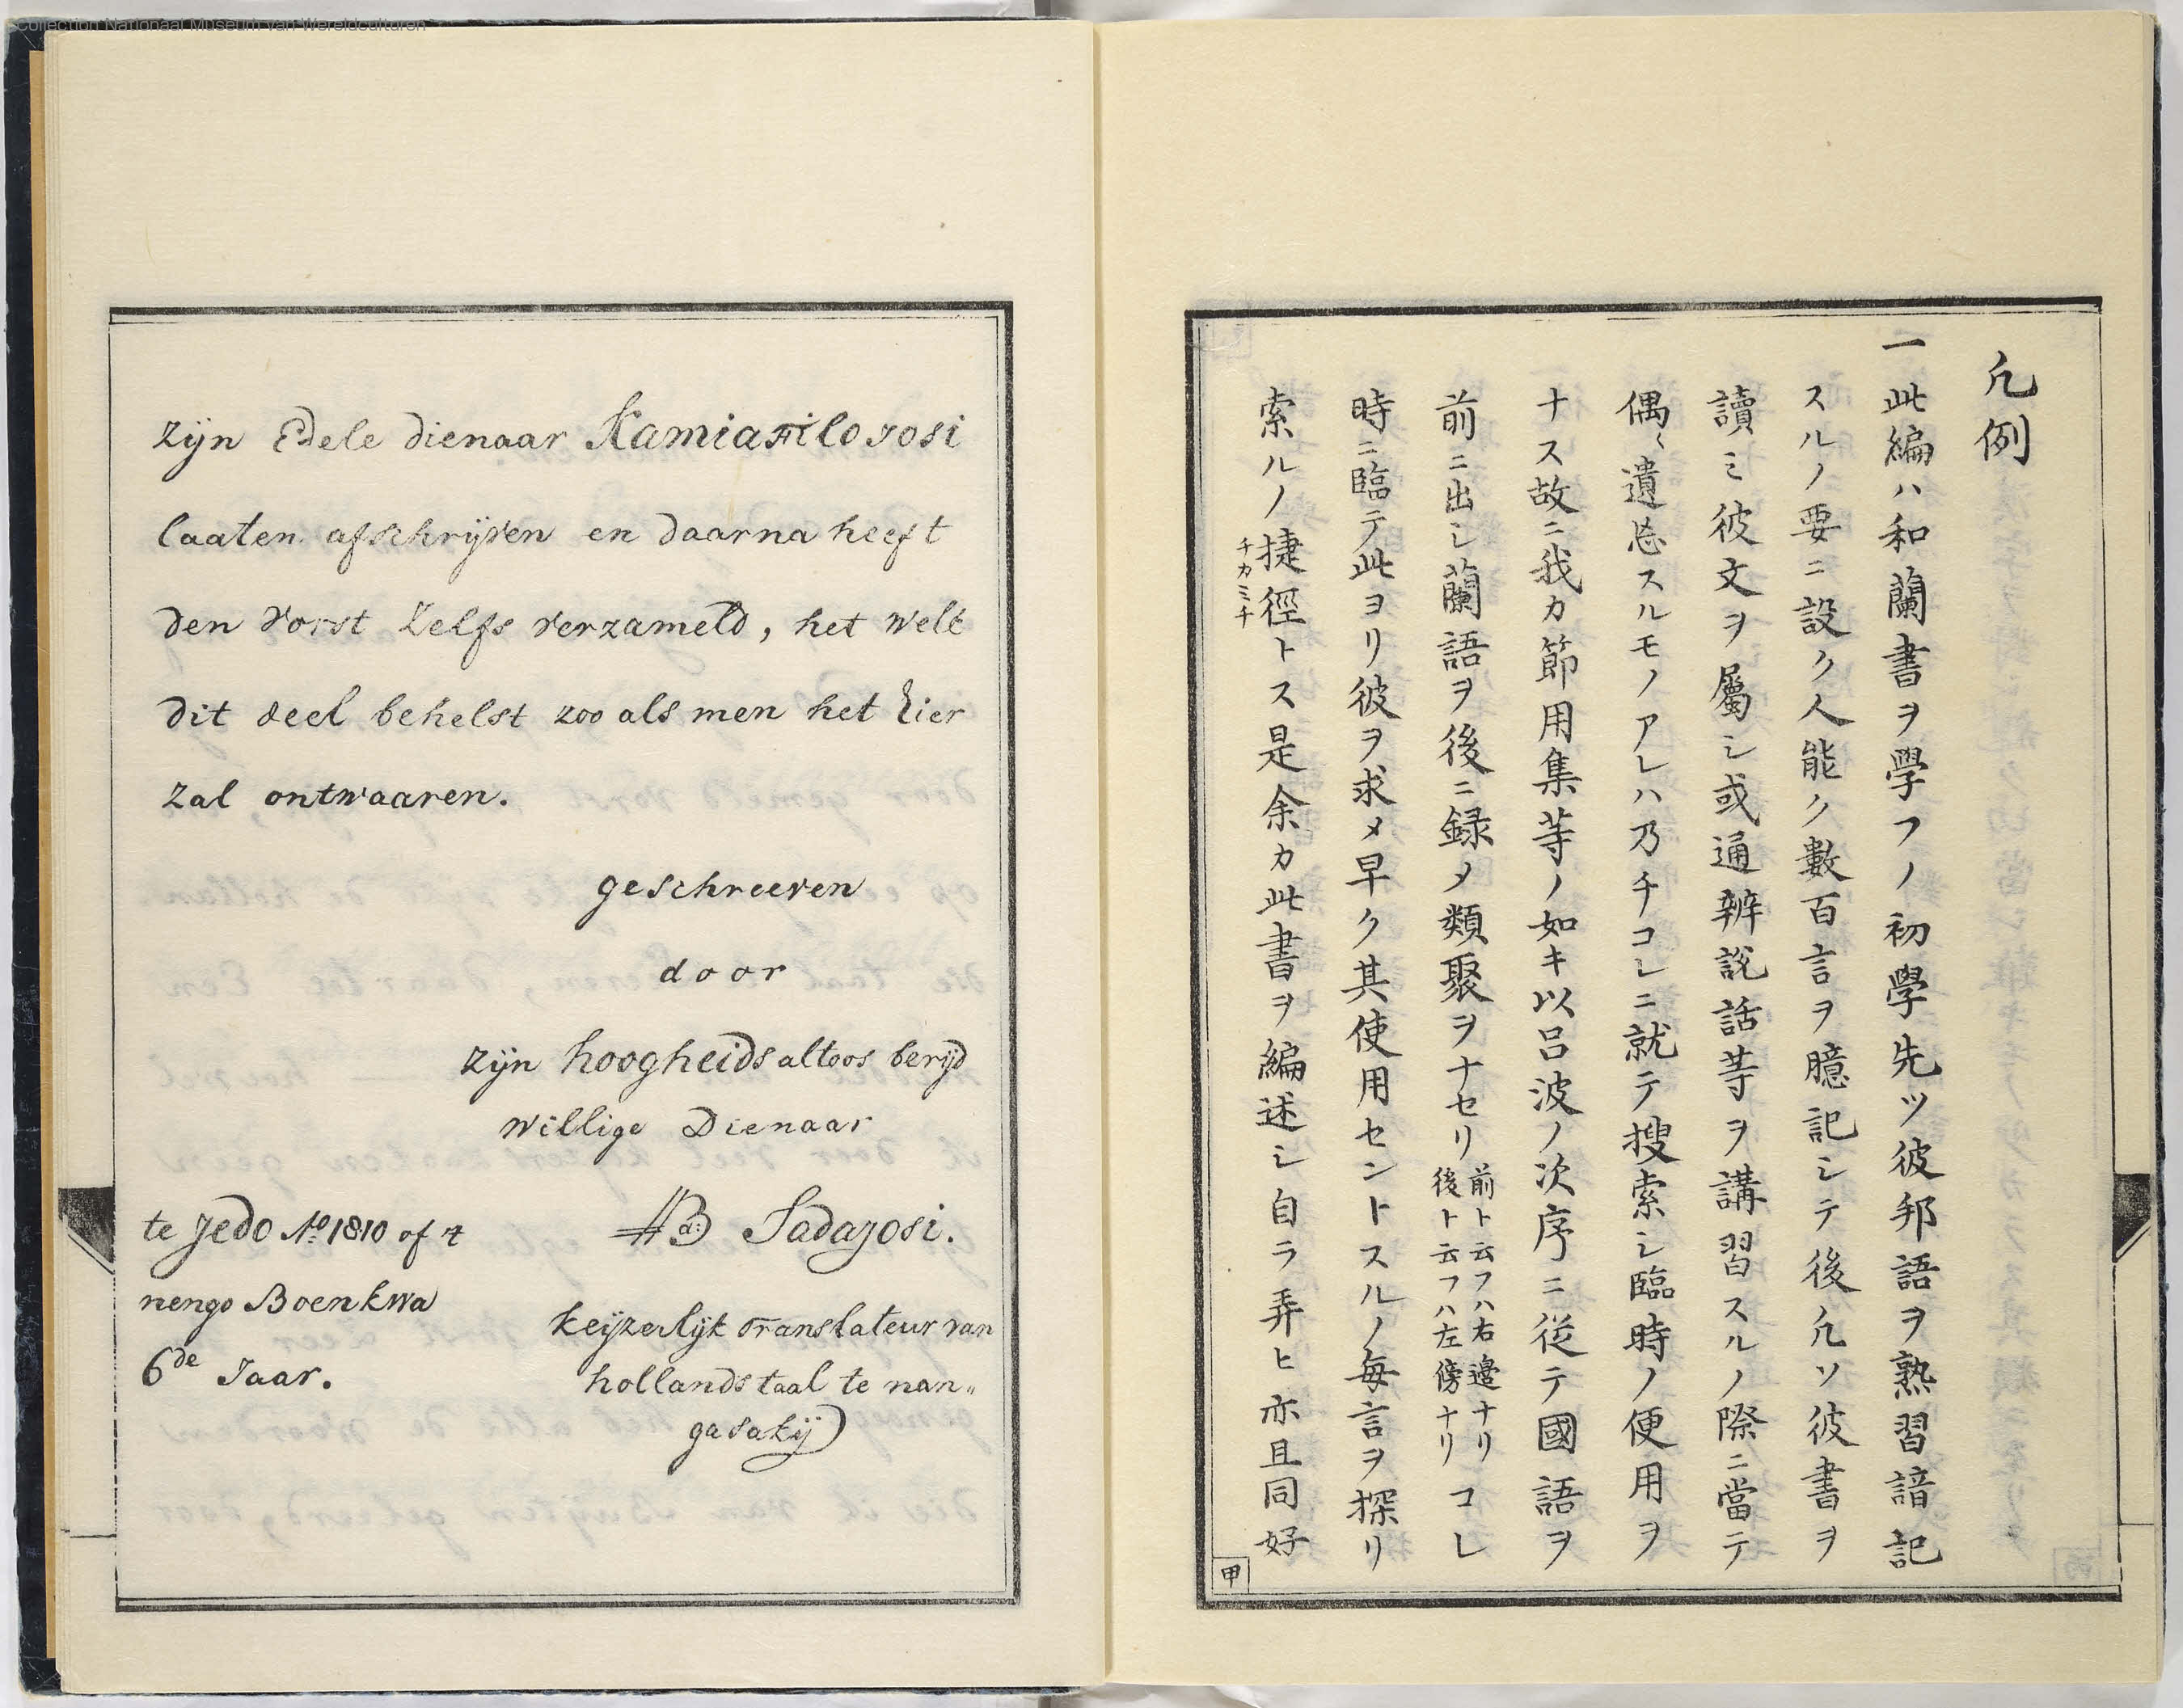 Collection Nationaal Museum van Wereldculturen
zijn Edele dienaar Kamiafilojosi
laaten afschrijven en daarna heeft
den vorst zelfs verzameld, het welk
dit deel behelst zoo als men het hier
zal ontwaaren.
geschreeven
door
zijn hoogheids altoos berijd
willige Dienaar
Sadajosi.
te Jedo Aº 1810 of 't
nengo Boenkwa
6de Jaar.
keijzerlijk translateur van
hollands taal te nan„
gasakij
凡例
一此編ハ和蘭書ヲ學フノ初學先ツ彼邦語ヲ熟習諳記
スルノ要ニ設ク人能ク數百言ヲ臆記シテ後凡ソ彼書ヲ
讀ミ彼文ヲ屬シ或通辨說話等ヲ講習スルノ際ニ當テ
偶〻遺忘スルモノアレハ乃チコレニ就テ搜索シ臨時ノ便用ヲ
ナス故ニ我カ節用集等ノ如キ以呂波ノ次序ニ從テ國語ヲ
前ニ出シ蘭語ヲ後ニ録メ類聚ヲナセリ前ト云フハ右邊ナリ後ト云フハ左傍ナリコレ
時ニ臨テ此ヨリ彼ヲ求メ早ク其使用セントスルノ毎言ヲ探リ
索ルノ捷徑トス是余カ此書ヲ編述シ自ラ弄ヒ亦且同好
チカミチ
甲